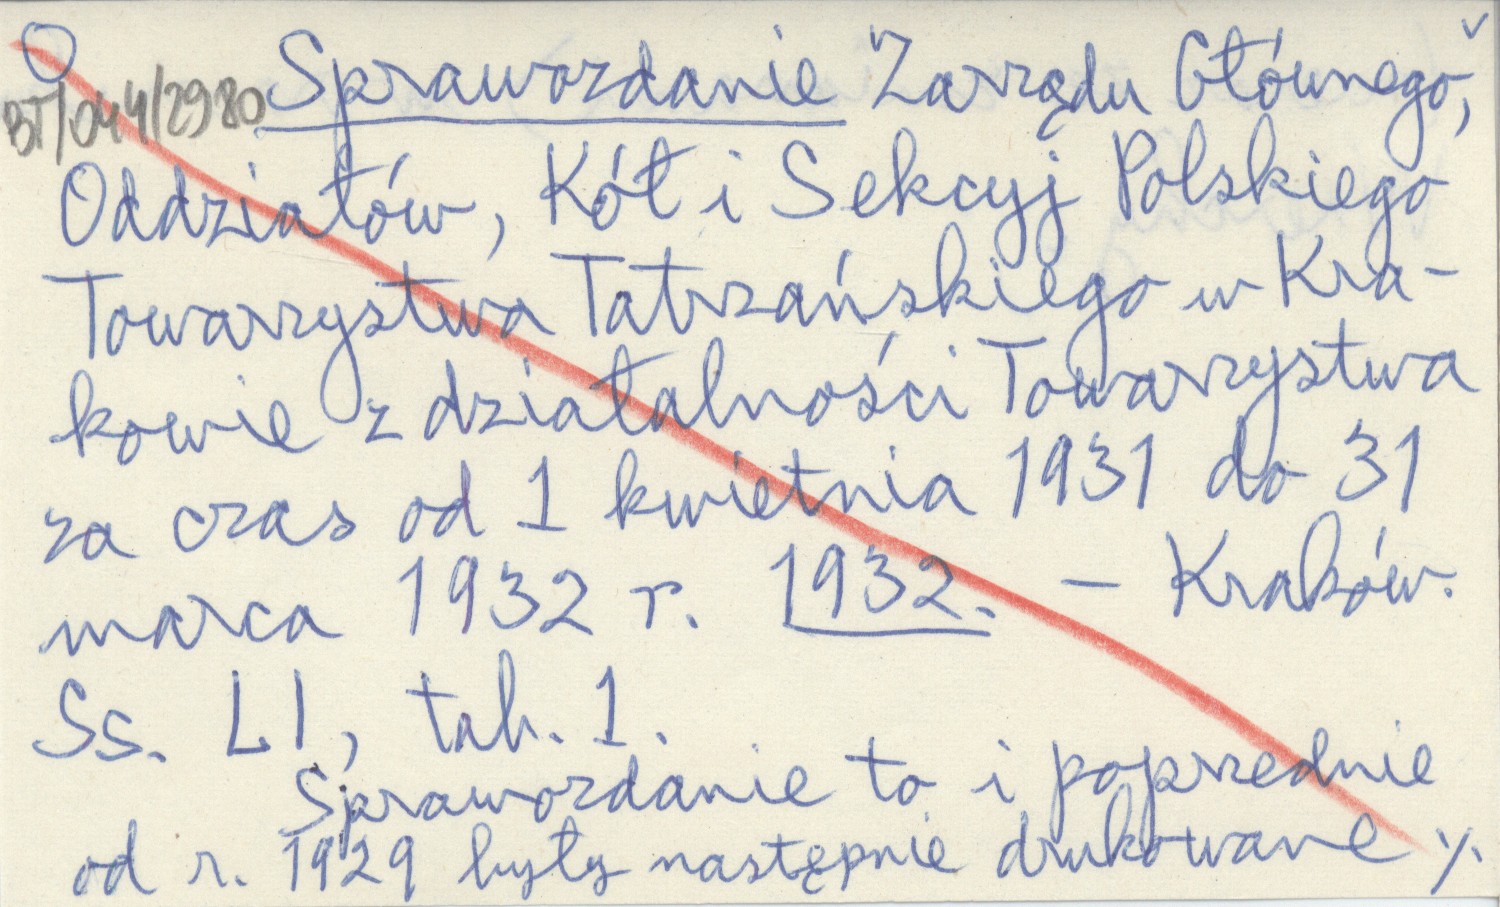 O
BT/044/2980
Sprawozdanie Zarządu Głównego,
Oddziałów, Kół i Sekcyj Polskiego
Towarzystwa Tatrzańskiego w Kra-
kowie z działalności Towarzystwa
za czas od 1 kwietnia 1931 do 31
marca 1932 r. 1932. — Kraków.
Ss. LI, tab. 1.
Sprawozdanie to i poprzednie
od r. 1929 były następnie drukowane ./.